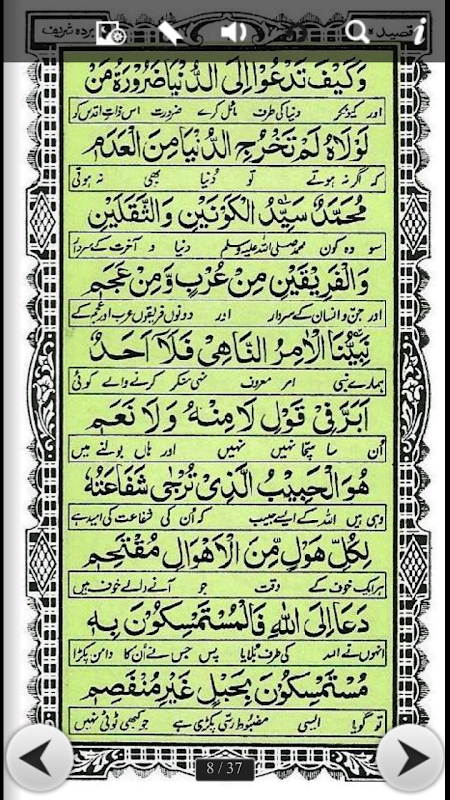 قصيدہ بردہ شریف
وَكَيْفَ تَدْعُوْا اِلَى الدُّنْيَا ضَرُوْرَةُ مَنْ
اور کیونکر دنیا کی طرف مائل کرے ضرورت اس ذات اقدس کو
لَوْلَاهُ لَمْ تَخْرُجِ الدُّنْيَا مِنَ الْعَدَمِ
کہ اگر نہ ہوتے تو دُنیا بھی نہ ہوتی
مُحَمَّدٌ سَيِّدُ الْكَوْنَيْنِ وَالثَّقَلَيْنِ
سو وہ کون محمد صلی اللہ علیہ وسلم دنیا و آخرت کے سردار
وَالْفَرِيْقَيْنِ مِنْ عُرْبٍ وَّمِنْ عَجَمِ
اور جن و انسان کے سردار اور دونوں فریقوں عرب اور عجم کے
نَبِيُّنَا الْاٰمِرُ النَّاهِيْ فَلَا اَحَدٌ
ہمارے نبی امر معروف نہی منکر کرنے والے کوئی
اَبَرَّ فِيْ قَوْلِ لَا مِنْهُ وَلَا نَعَمِ
اُن سا سچا نہیں نہیں اور ہاں بولنے میں
هُوَ الْحَبِيْبُ الَّذِيْ تُرْجٰى شَفَاعَتُهٗ
وہی ہیں اللہ کے ایسے حبیب کہ اُن کی شفاعت کی امید ہے
لِكُلِّ هَوْلٍ مِّنَ الْاَهْوَالِ مُقْتَحِمِ
ہر ایک خوف کے وقت جو آنے والے خوف ہیں
دَعَا اِلَى اللّٰهِ فَالْمُسْتَمْسِكُوْنَ بِهٖ
انہوں نے اللہ کی طرف بلایا پس جس نے اُن کا دامن پکڑا
مُسْتَمْسِكُوْنَ بِحَبْلٍ غَيْرِ مُنْفَصِمِ
تو گویا ایسی مضبوط رسّی پکڑی ہے جو کبھی ٹوٹی نہیں
8 / 37